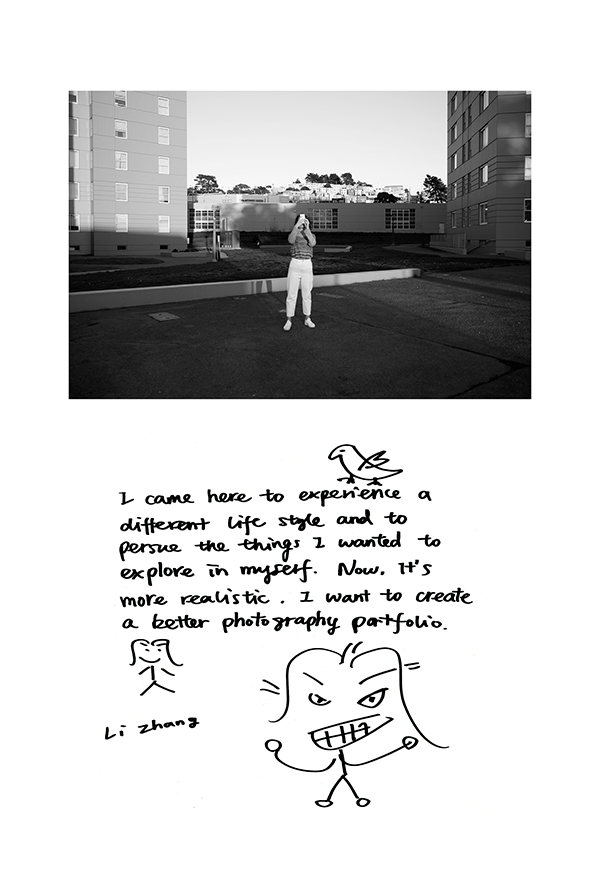 I came here to experience a
different life style and to
persue the things I wanted to
explore in myself. Now, It's
more realistic. I want to create
a better photography portfolio.
Li Zhang